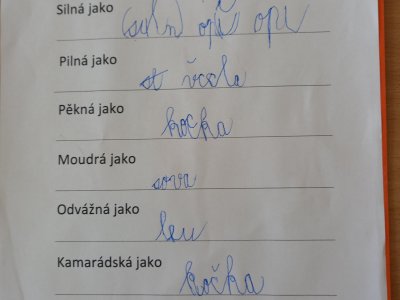 Silná jako (siln) opi opi
Pilná jako st včela
Pěkná jako kočka
Moudrá jako sova
Odvážná jako lev
Kamarádská jako kočka